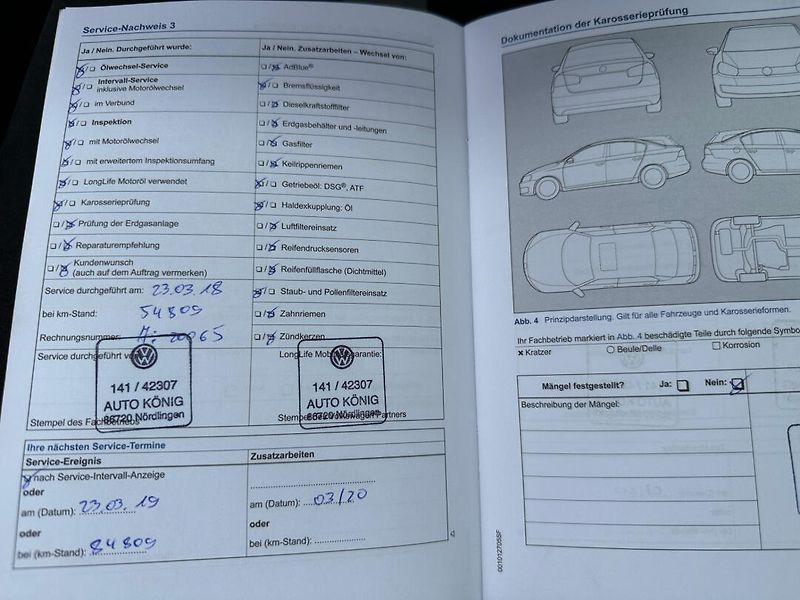 Service-Nachweis 3
Ja / Nein. Durchgeführt wurde:
Ölwechsel-Service
Intervall-Service
inklusive Motorölwechsel
im Verbund
Inspektion
mit Motorölwechsel
mit erweitertem Inspektionsumfang
LongLife Motoröl verwendet
Karosserieprüfung
Prüfung der Erdgasanlage
Reparaturempfehlung
Kundenwunsch
(auch auf dem Auftrag vermerken)
Service durchgeführt am: 23.03.18
bei km-Stand: 54809
Rechnungsnummer:
Service durchgeführt
141 / 42307
AUTO KÖNIG
86720 Nördlingen
Stempel des Fachbetriebs
Ja / Nein. Zusatzarbeiten – Wechsel von:
AdBlue®
Bremsflüssigkeit
Dieselkraftstofffilter
Erdgasbehälter und -leitungen
Gasfilter
Keilrippenriemen
Getriebeöl: DSG®, ATF
Haldexkupplung: Öl
Luftfiltereinsatz
Reifendrucksensoren
Reifenfüllflasche (Dichtmittel)
Staub- und Pollenfiltereinsatz
Zahnriemen
Zündkerzen
LongLife
141 / 42307
AUTO KÖNIG
86720 Nördlingen
Partners
Ihre nächsten Service-Termine
Service-Ereignis
nach Service-Intervall-Anzeige
oder
am (Datum): 23.03.19
oder
bei (km-Stand): 84809
Zusatzarbeiten
am (Datum): 03/20
oder
bei (km-Stand):
Dokumentation der Karosserieprüfung
Abb. 4 Prinzipdarstellung. Gilt für alle Fahrzeuge und Karosserieformen.
Ihr Fachbetrieb markiert in Abb. 4 beschädigte Teile durch folgende
x Kratzer
Beule/Delle
Korrosion
Mängel festgestellt? Ja: Nein:
Beschreibung der Mängel:
001012705SF